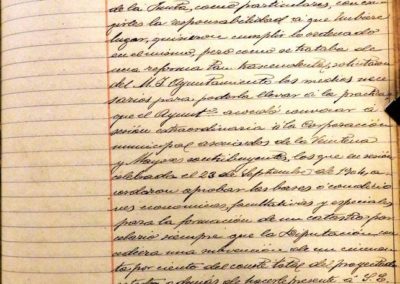 de la Junta, como particulares, con car
gótes la responsabilidad á que hubiere
lugar, quisieron cumplir lo ordenado
en el mismo, pero como se trataba de
una reforma tan trascendente, solicitaron
del M. I. Ayuntamiento los medios nece-
sarios para poderla llevar á la práctica
que el Ayuntº acordó convocar á
sesión extraordinaria á la Corporación
municipal, asociados de la Veintena
y Mayores contribuyentes, los que en sesión
celebrada el 28 de Septiembre de 1904, a-
cordaron aprobar las bases ó condicio
nes económicas, facultativas y especiales
para la formación de un catastro par
celario siempre que la Diputación con
cediera una subvención de un cincuen
ta por ciento del coste total del proyectado
catastro, además de hacerle presente á S. E.